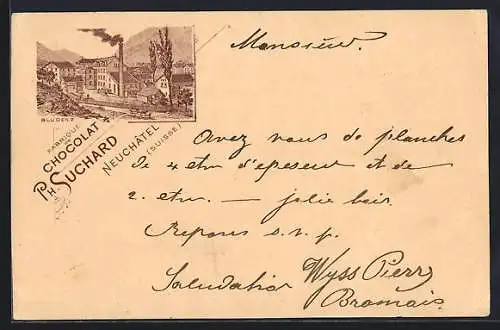 BLUDENZ
FABRIQUE
DE
CHOCOLAT
PH. SUCHARD
NEUCHÂTEL
(SUISSE)
Monsieur.
Avez vous de planches
de 4 ctm d'epesent et de
2. ctm. — jolie bois.
Repons s.v.p.
Saludatios
Wyss Pierre
Bramois